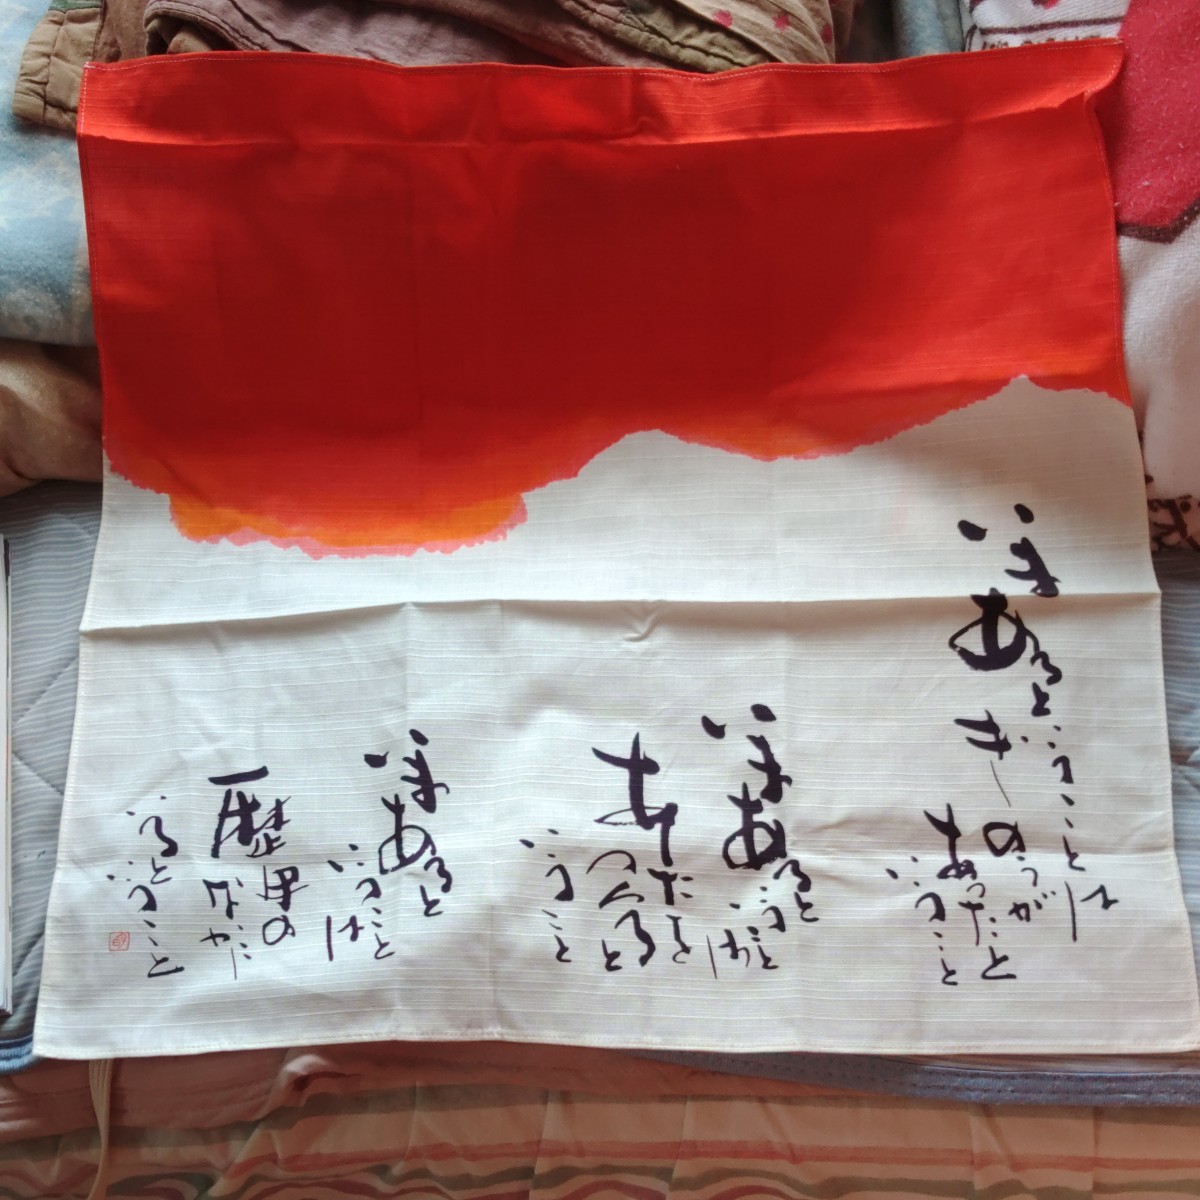 いまあるということは
きのうが
あったと
いうこと
いまあると
いうことは
あしたも
つくると
いうこと
いまあると
いうことは
歴史の
なかに
いると
いうこと